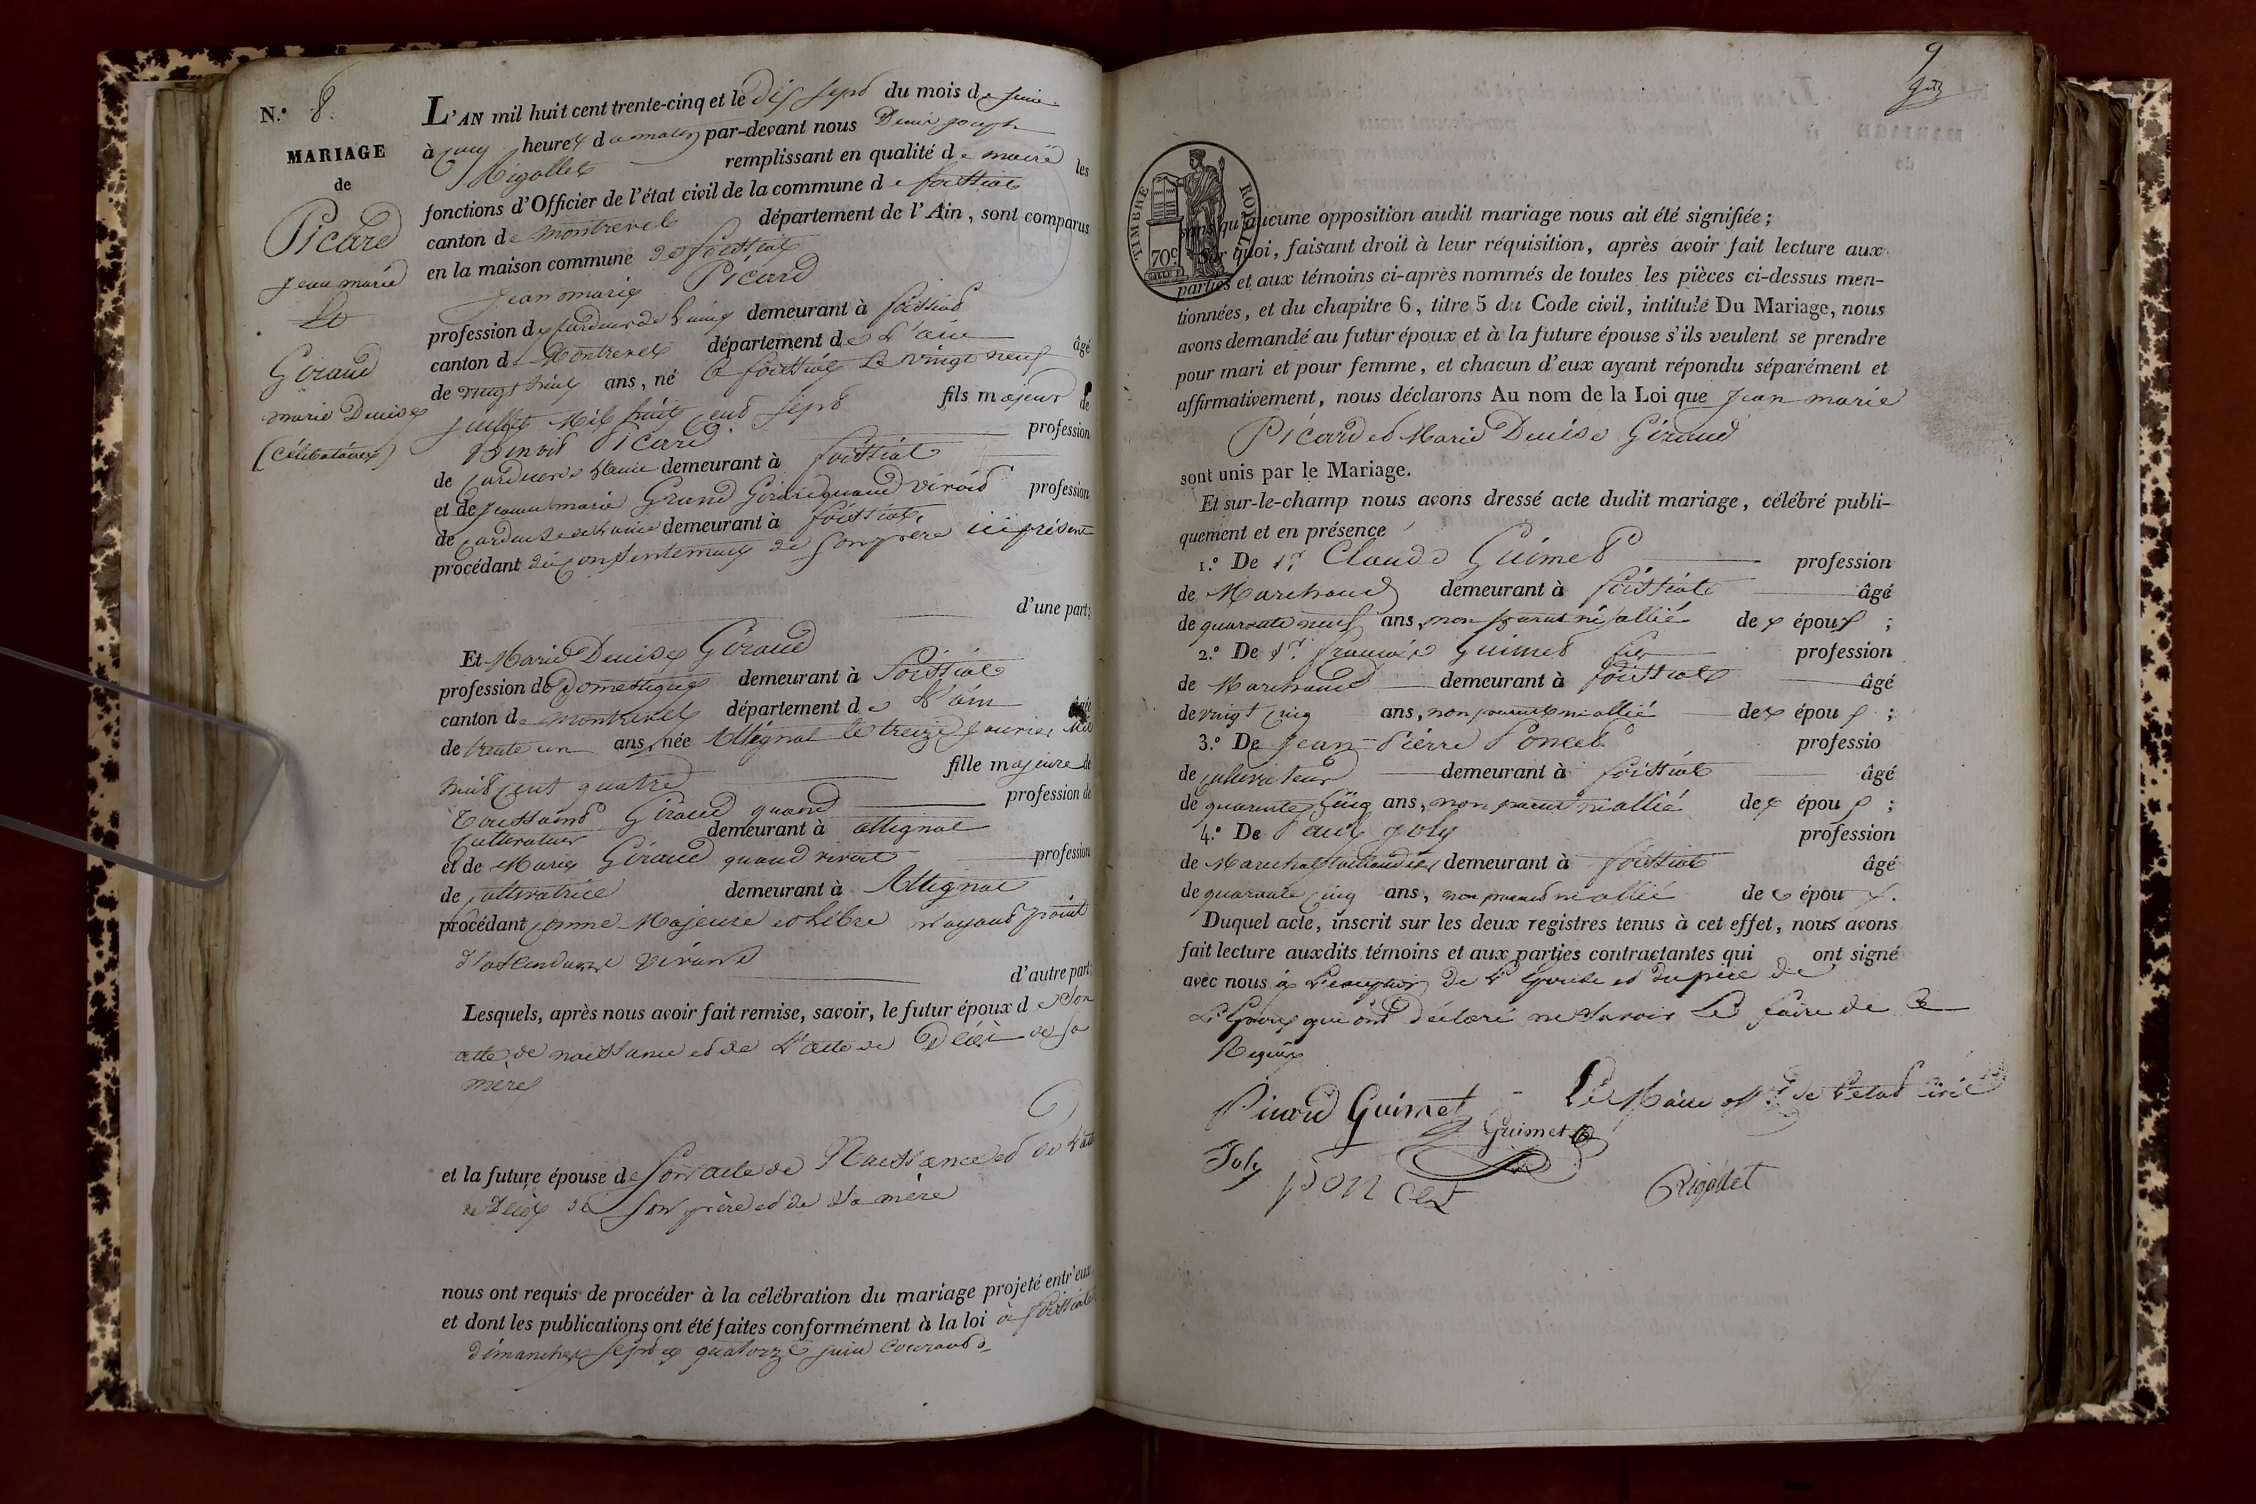 N.° 8.
MARIAGE
de
Picard
Jean marie
Et
Giraud
marie Denise
(Célibataires)
L'AN mil huit cent trente-cinq et le dix sept du mois de juin
à cinq heures du matin par-devant nous Denis joseph
Rigollet remplissant en qualité de maire les
fonctions d'Officier de l'état civil de la commune de foissiat
canton de montrevel département de l'Ain, sont comparus
en la maison commune de foissiat
Jean marie Picard
profession de cardeur de laine demeurant à foissiat
canton de Montrevel département de L'ain âgé
de vingt huit ans, né à foissiat Le vingt neuf
juillet Mil huit cent sept fils majeur de
Benoit Picard profession
de cardeur de laine demeurant à foissiat
et de jeanne marie Grand quand vivoit profession
de cardeuse de laine demeurant à foissiat
procédant du consentement de Son père ici présent
d'une part;
Et Marie Denise Giraud
profession de Domestique demeurant à foissiat
canton de montrevel département de L'ain âgée
de trente un ans, née Attignat le treize janvier Mil
huit cent quatre fille majeure de
Toussaint Giraud quand profession de
cultivateur demeurant à attignat
et de Marie Giraud quand vivoit profession
de cultivatrice demeurant à Attignat
procédant comme Majeure et Libre n'ayant point
d'ascendants vivants
d'autre part;
Lesquels, après nous avoir fait remise, savoir, le futur époux de Son
acte de naissance et de L'acte de Décès de Sa
mère
et la future épouse de Son acte de Naissance et de L'acte
de Décès de Son père et de Sa mère
nous ont requis de procéder à la célébration du mariage projeté entr'eux
et dont les publications ont été faites conformément à la loi à foissiat
dimanches sept et quatorze juin courant
9
TIMBRE ROYAL
70c
sans qu'aucune opposition audit mariage nous ait été signifiée;
Sur quoi, faisant droit à leur réquisition, après avoir fait lecture aux
parties et aux témoins ci-après nommés de toutes les pièces ci-dessus men-
tionnées, et du chapitre 6, titre 5 du Code civil, intitulé Du Mariage, nous
avons demandé au futur époux et à la future épouse s'ils veulent se prendre
pour mari et pour femme, et chacun d'eux ayant répondu séparément et
affirmativement, nous déclarons Au nom de la Loi que Jean marie
Picard et Marie Denise Giraud
sont unis par le Mariage.
Et sur-le-champ nous avons dressé acte dudit mariage, célébré publi-
quement et en présence
1.° De Sr. Claude Guimet profession
de Marchand demeurant à foissiat âgé
de quarante neuf ans, non parent ni allié des époux;
2.° De Sr. francois Guimet fils profession
de Marchand demeurant à foissiat âgé
de vingt cinq ans, non parent ni allié des époux;
3.° De Jean-Pierre Poncet professio
de cultivateur demeurant à foissiat âgé
de quarante cinq ans, non parent ni allié des époux;
4.° De Paul Joly profession
de Marechal taillandier demeurant à foissiat âgé
de quarante cinq ans, non parent ni allié des époux.
Duquel acte, inscrit sur les deux registres tenus à cet effet, nous avons
fait lecture auxdits témoins et aux parties contractantes qui ont signé
avec nous à L'exception de L'Epouse et du père de
L'Epoux qui ont déclaré ne Savoir Le faire de ce
Requis
Picard Guimet Le Maire off. de L'etat civil
Guimet
Joly
pon cet
Rigollet